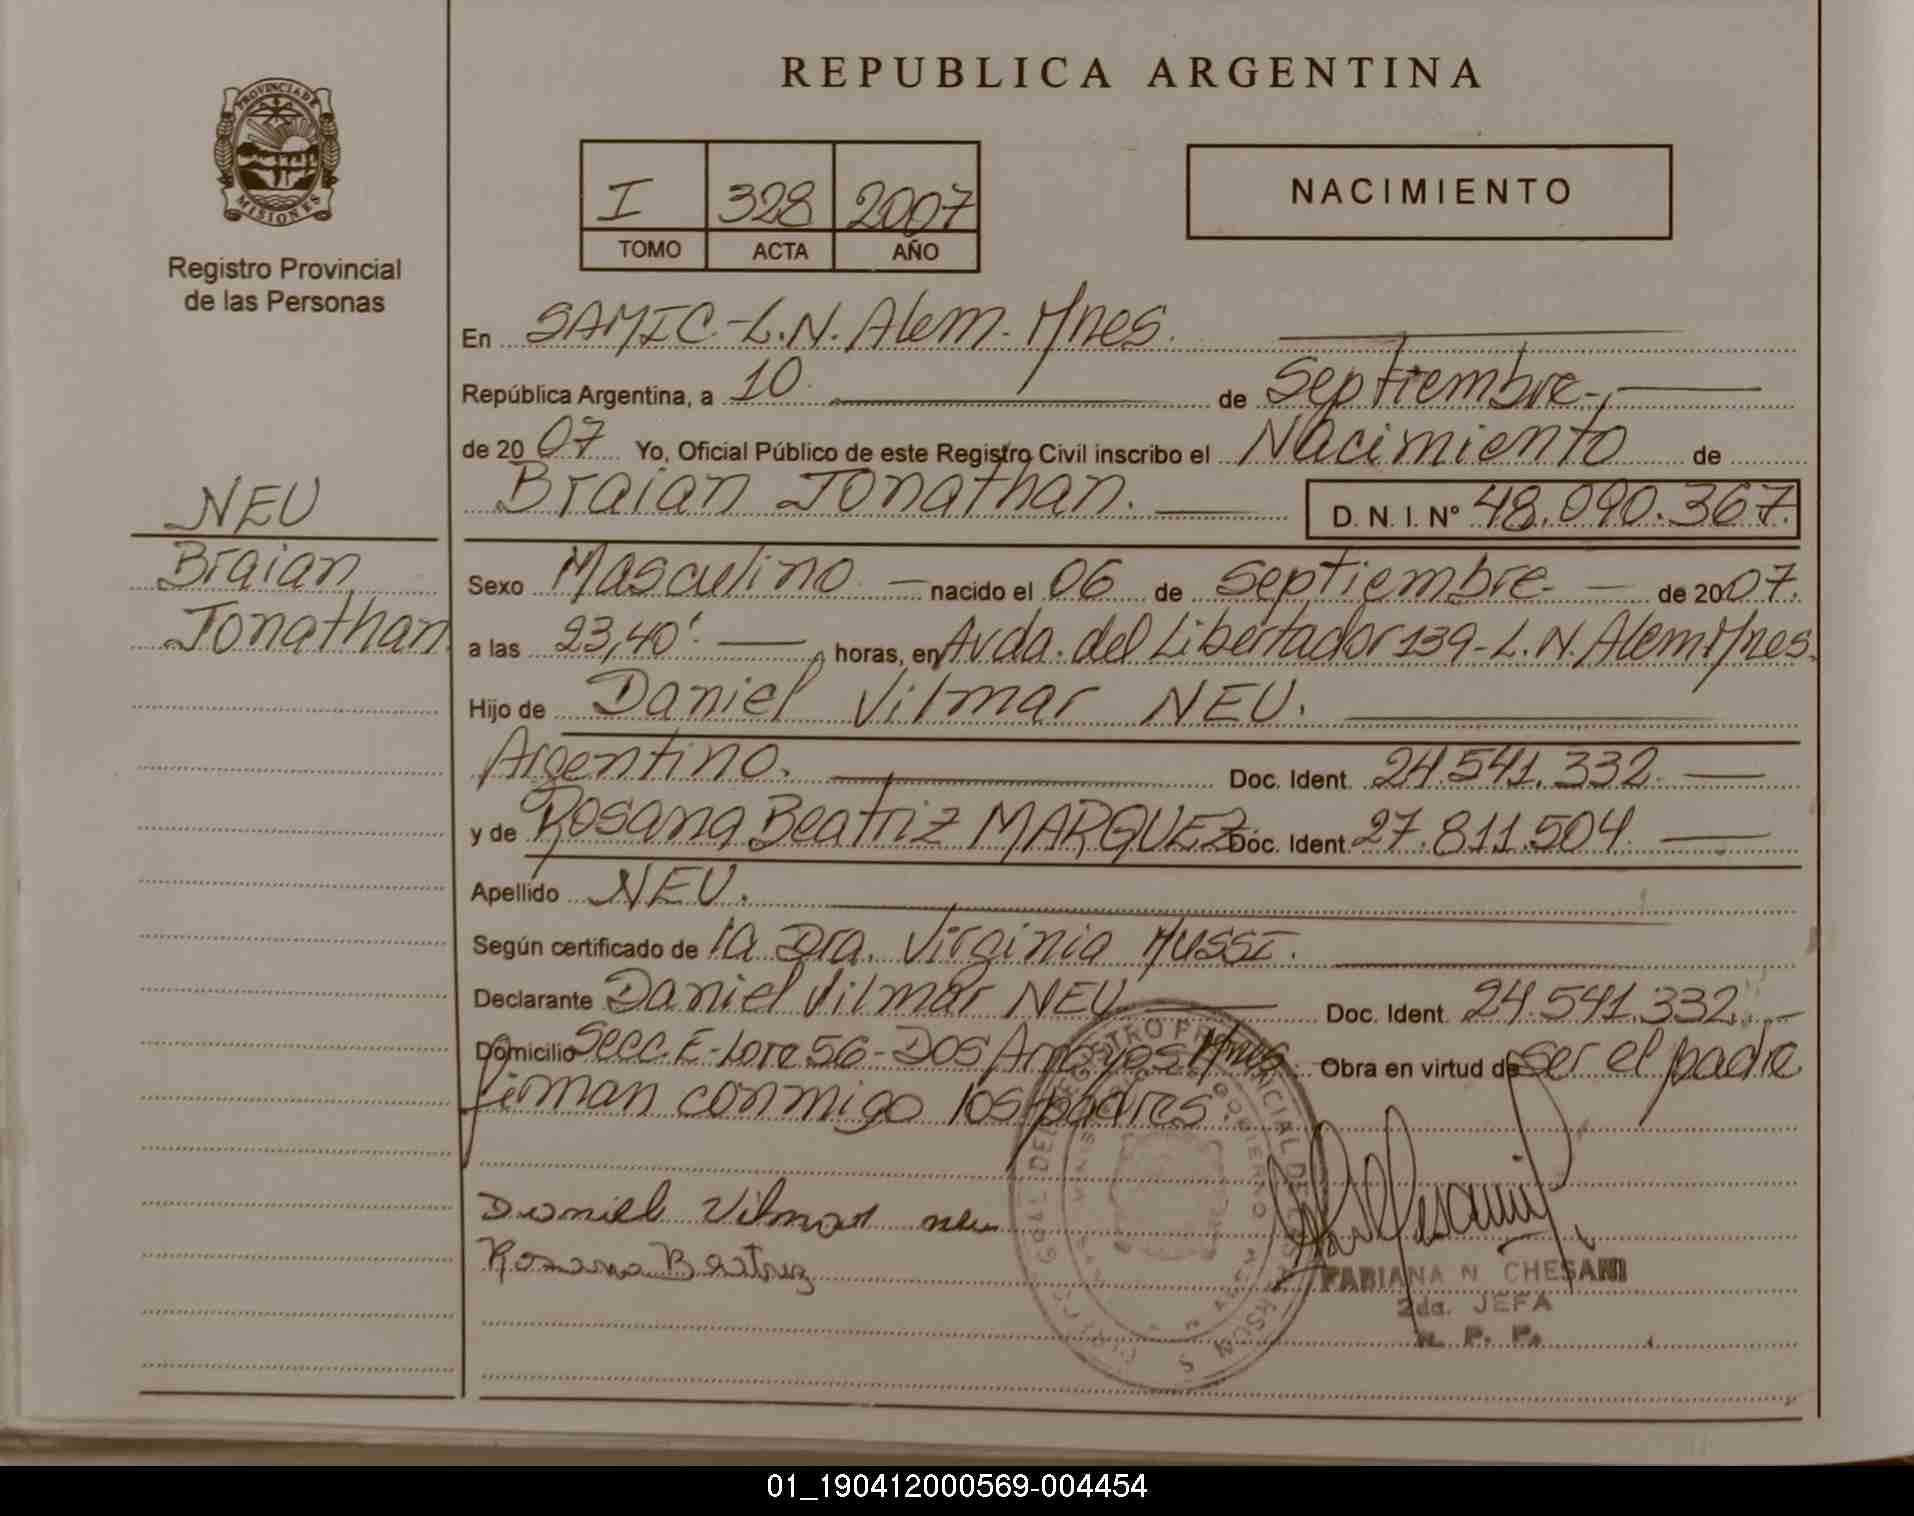 REPUBLICA ARGENTINA
PROVINCIA DE
MISIONES
Registro Provincial
de las Personas
I 328 2007
TOMO ACTA AÑO
NACIMIENTO
En SAMIC.-L.N.Alem-Mnes.
República Argentina, a 10 de Septiembre-,
de 2007 Yo, Oficial Público de este Registro Civil inscribo el Nacimiento de
Braian Jonathan. D. N. I. Nº 48.090.367.
NEU
Braian
Jonathan.
Sexo Masculino nacido el 06 de Septiembre- de 2007.
a las 23,40'. horas, en Avda. del Libertador 139-L.N.Alem Mnes.
Hijo de Daniel Vilmar NEU.
Argentino. Doc. Ident. 24.541.332.
y de Rosana Beatriz MARQUEZ Doc. Ident. 27.811.504.
Apellido NEU.
Según certificado de la Dra. Virginia MUSSI.
Declarante Daniel Vilmar NEU Doc. Ident. 24.541.332.
Domicilio Secc. E-Lote 56-Dos Arroyos Mnes Obra en virtud de ser el padre
firman conmigo los padres.
Daniel Vilmar neu
Rosana Beatriz
FABIANA N. CHESANI
2da. JEFA
R. P. P.
01_190412000569-004454